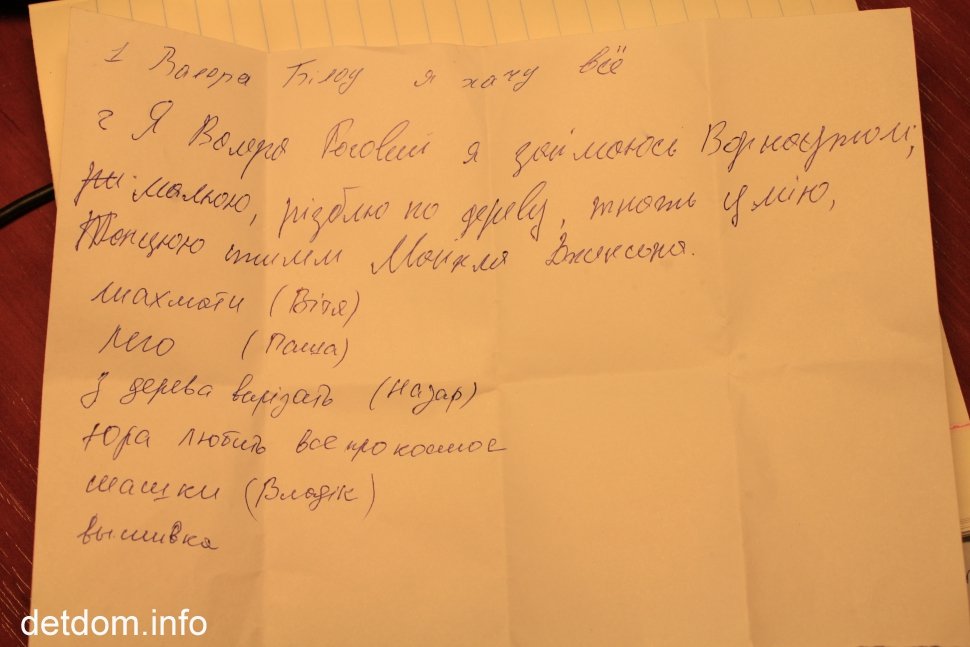 1 Валера Білоу я хачу всё
2 Я Валера я займаюсь
малюю, різблю по дереву, ткать умію,
Танцюю Майкла Джексона.
шахмати (Вітя)
Лего (Паша)
З дерева варізать (Назар)
Юра любить все про космос
шашки (Владік)
вышивка
detdom.info